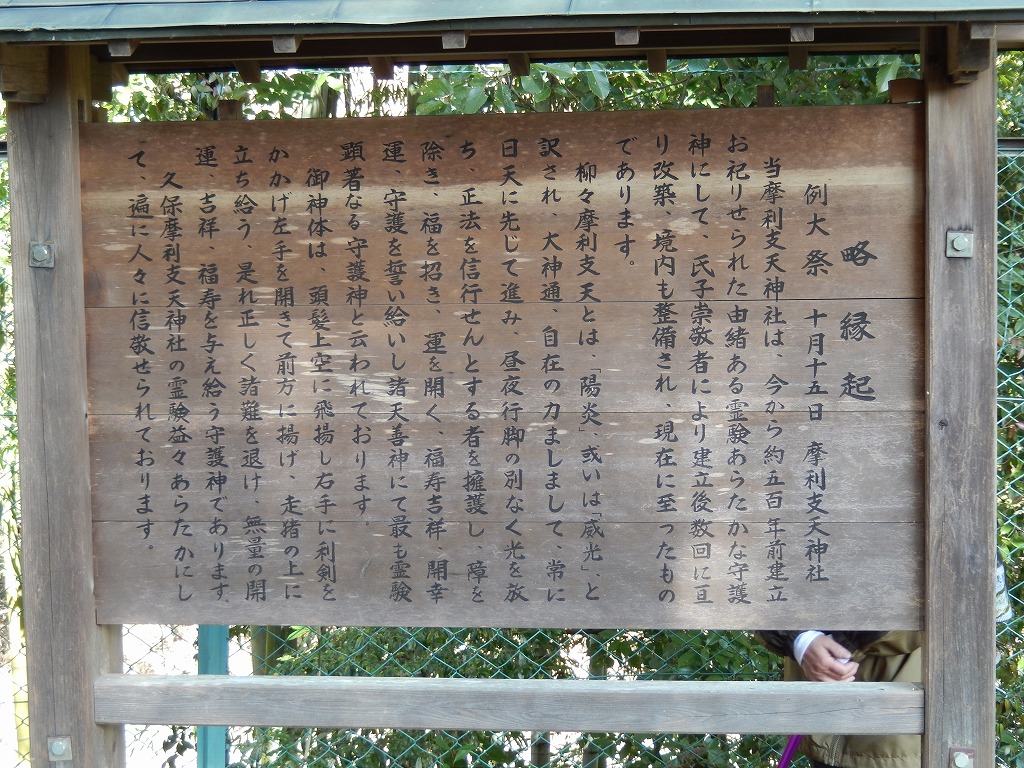 略縁起
例大祭 十月十五日 摩利支天神社
当摩利支天神社は、今から約五百年前建立
お祀りせられた由緒ある霊験あらたかな守護
神にして、氏子崇敬者により建立後数回に亘
り改築、境内も整備され、現在に至ったもの
であります。
柳々摩利支天とは、「陽炎」、或いは「威光」、と
訳され、大神通、自在の力ましまして、常に
日天に先じて進み、昼夜行脚の別なく光を放
ち、正法を信行せんとする者を擁護し、障を
除き、福を招き、運を開く、福寿吉祥、開幸
運、守護を誓い給いし諸天善神にて最も霊験
顕著なる守護神と云われております。
御神体は、頭髪上空に飛揚し右手に利剣を
かかげ左手を開きて前方に揚げ、走猪の上に
立ち給う、是れ正しく諸難を退け、無量の開
運、吉祥、福寿を与え給う守護神であります。
久保摩利支天神社の霊験益々あらたかにし
て、遍に人々に信敬せられております。